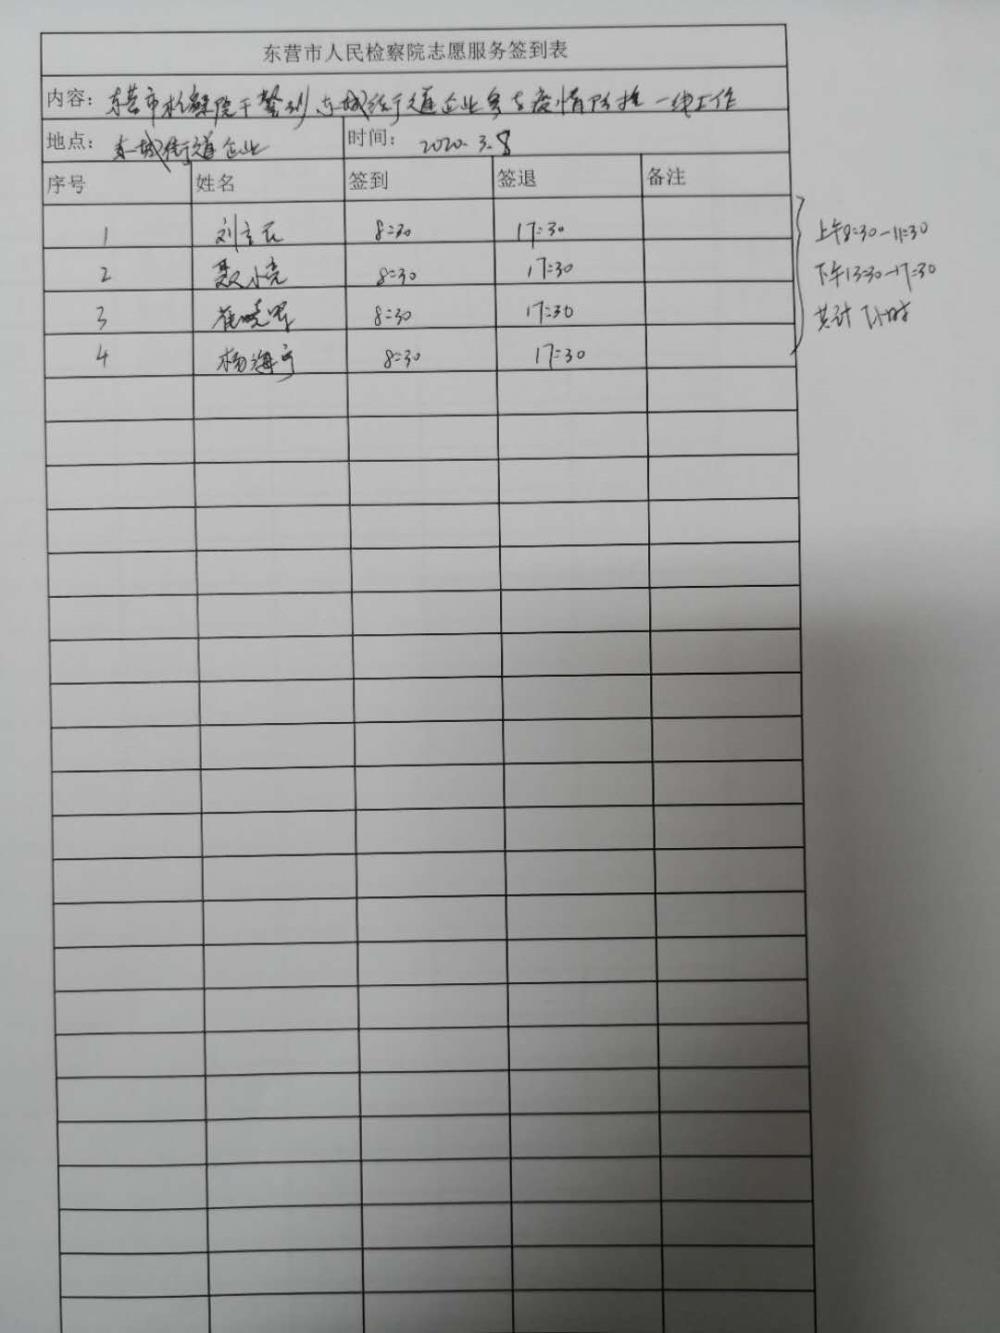 东营市人民检察院志愿服务签到表
内容：东营市检察院干警到东城街道企业参与疫情防控一线工作
地点：东城街道企业 时间：2020.3.8
序号 姓名 签到 签退 备注
1 刘 8:30 17:30
2 聂小亮 8:30 17:30
3 崔晓 8:30 17:30
4 杨海宁 8:30 17:30
上午8:30-11:30
下午13:30-17:30
共计7小时